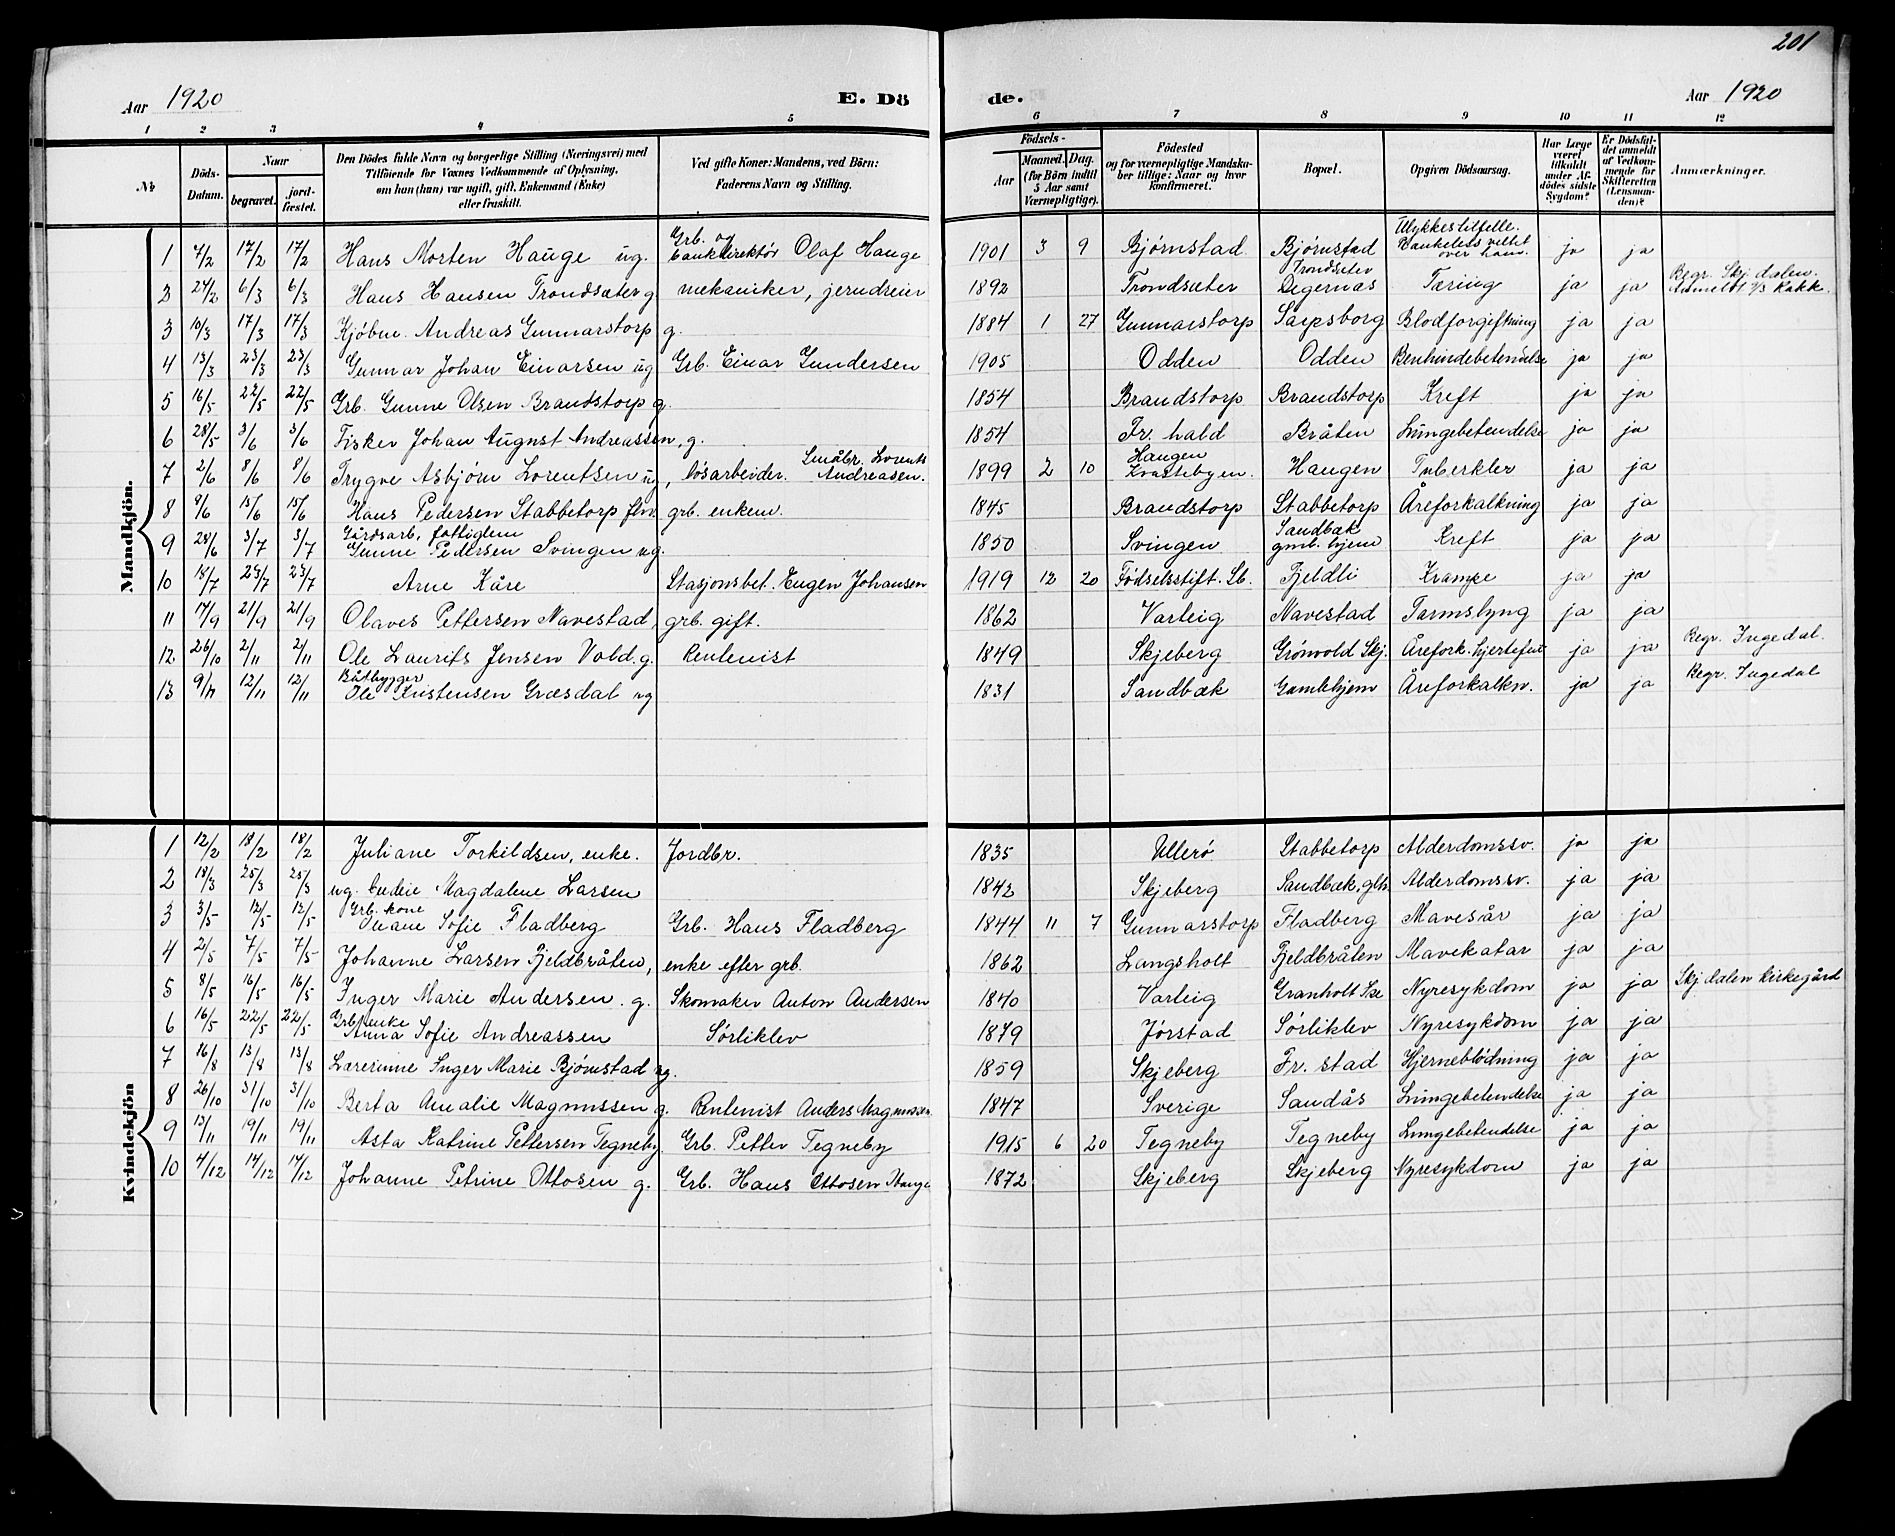 201
Aar 1920 E. Dö de. Aar 1920
1 2 3 4 5 6 7 8 9 10 11 12
No
Döds-Datum.
Naar
begravet.
jord-fæstet.
Den Dödes fulde Navn og borgerlige Stilling (Næringsvei) med
Tilföiende for Voxnes Vedkommende af Oplysning,
om han (hun) var ugift, gift, Enkemand (Enke)
eller fraskilt.
Ved gifte Koner: Mandens, ved Börn:
Faderens Navn og Stilling.
Födsels-
Aar
Maaned. Dag.
(for Börn indtil
5 Aar samt
Værnepligtige).
Födested
og for værnepligtige Mandska-
ber tillige: Naar og hvor
konfirmeret.
Bopæl.
Opgiven Dödsaarsag.
Har Læge
været
tilkaldt
under Af-
dödes sidste
Sygdom?
Er Dödsfal-
det anmeldt
af Vedkom-
mende for
Skifteretten
(Lensman-
den)?
Anmærkninger.
Mandkjön.
1 7/2 17/2 17/2 Hans Morten Hauge ug. Grb. og Bankdirektør Olaf Hauge 1901 3 9 Bjørnstad Bjørnstad Ulykkestilfelle. veltet over ham. ja ja
2 24/2 6/3 6/3 Hans Hansen Trondsæter g mekaniker, 1892 Trondsæter Trondsæter Degernæs Tæring ja ja Begr. Skj. dalen. Anmeldt Rakk.
3 10/3 17/3 17/3 Kjøbm. Andreas Gunnarstorp g. 1884 1 27 Gunnarstorp Sarpsborg Blodforgiftning ja ja
4 13/3 23/3 23/3 Gunnar Johan Einarsen ug Grb. Einar Gundersen 1905 Odden Odden Benhindebetendelse ja ja
5 16/5 22/5 22/5 Grb. Gunne Olsen Brandstorp g. 1854 Brandstorp Brandstorp Kreft ja ja
6 28/5 3/6 3/6 Fisker Johan August Andreassen, g. 1854 Fr. hald Bråten Lungebetendelse ja ja
7 2/6 8/6 8/6 Trygve Asbjørn Lorentsen ug, løsarbeider. Småbr. Lorents Andreasen. 1899 2 10 Haugen Haugen Tuberkler ja ja
8 8/6 15/6 15/6 Hans Pedersen Stabbetorp grb. enkem. 1845 Brandstorp Stabbetorp Åreforkalkning ja ja
9 28/6 3/7 3/7 Gårdsarb, fattiglem Gunne Pedersen Svingen ug. 1850 Svingen Sandbæk gmb. hjem Kreft ja ja
10 18/7 23/7 23/7 Arne Kåre Stasjonsbet. Eugen Johansen 1919 12 20 Fødselsstift. Sb. Fjeldli Krampe ja ja
11 17/9 21/9 21/9 Olaves Pettersen Navestad, grb. gift. 1862 Varteig Navestad Tarmslyng ja ja
12 26/10 2/11 2/11 Ole Laurits Jensen Vold. g. Rentenist 1849 Skjeberg Grønvold Skj. Årefork. hjertefeil ja ja Begr. Ingedal.
13 9/11 12/11 12/11 Båtbygger Ole Kristensen Græsdal ug 1831 Sandbæk Gamlehjem Åreforkalkn. ja ja Begr. Ingedal
Kvindekjön
1 12/2 18/2 18/2 Juliane Torkildsen, enke. Jordbr. 1835 Ullerø Stabbetorp Alderdomssv. ja ja
2 18/3 25/3 25/3 ug. Magdalene Larsen 1842 Skjeberg Sandbæk, glh. Alderdomssv. ja ja
3 3/5 12/5 12/5 Grb. kone Oleane Sofie Fladberg Grb. Hans Fladberg 1844 11 7 Gunnarstorp Fladberg Mavesår ja ja
4 2/5 7/5 7/5 Johanne Larsen Fjeldbråten, enke efter grb. 1862 Langsholt Fjeldbråten Mavekatar ja ja
5 8/5 16/5 16/5 Inger Marie Andersen. g. Skomaker Anton Andersen 1840 Varteig Granholt Nyresykdom ja ja Skj. dalen kirkegård
6 16/5 22/5 22/5 Grb. enke Anna Sofie Andreassen Sørliklev 1879 Jørstad Sørliklev Nyresykdom ja ja
7 16/8 13/8 13/8 Lærerinne Inger Marie Bjørnstad ug. 1859 Skjeberg Fr. stad Hjerneblødning ja ja
8 26/10 31/10 31/10 Berta Amalie Magnussen g. Rentenist Anders Magnussen 1847 Sverige Sandås Lungebetendelse ja ja
9 13/11 19/11 19/11 Asta Katrine Pettersen Tegneby. Grb. Petter Tegneby 1915 6 20 Tegneby Tegneby Lungebetendelse ja ja
10 4/12 14/12 14/12 Johanne Petrine Ottosen g. Grb. Hans Ottosen Hauge 1872 Skjeberg Skjeberg Nyresykdom ja ja